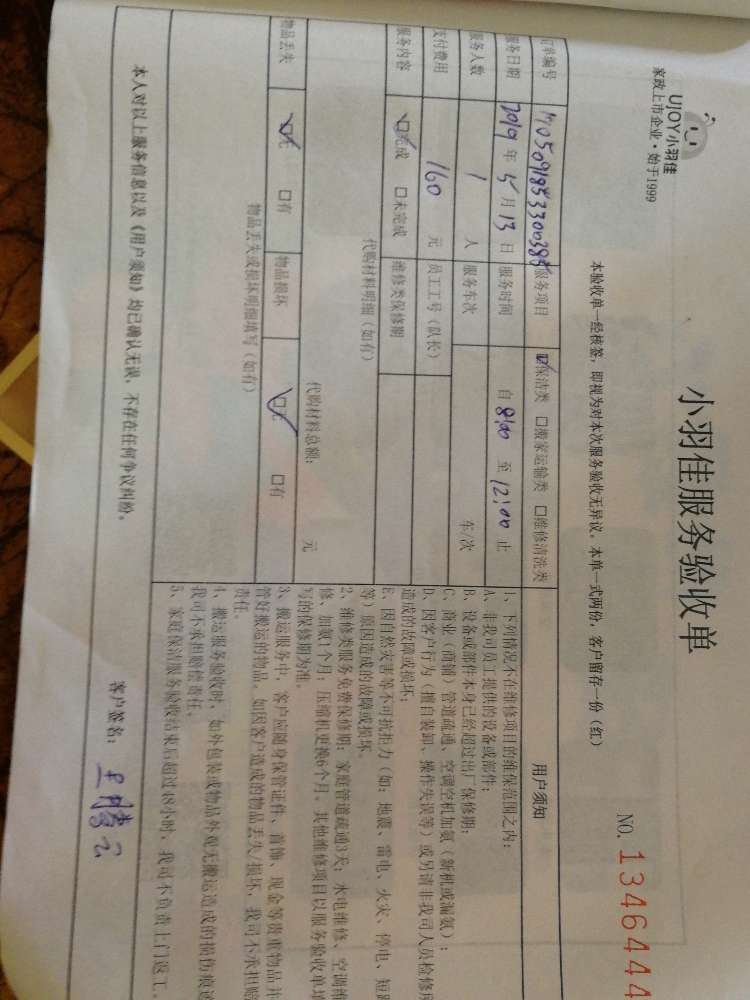 UJOY小羽佳
家政上市企业·始于1999
小羽佳服务验收单
NO. 1346444
本验收单一经核签，即视为对本次服务验收无异议。本单一式两份，客户留存一份（红）
订单编号
服务项目 ☑保洁类 □搬家运输类 □维修清洗类
服务日期 2019 年 5 月 13 日 服务时间 自 8:00 至 12:00 止
服务人数 1 人 服务车次 车/次
支付费用 160 元 员工工号（队长）
服务内容 ☑完成 □未完成 维修类保修期
代购材料明细（如有）
代购材料总额： 元
物品丢失 ☑无 □有 物品损坏 ☑无 □有
物品丢失或损坏明细填写（如有）
用户须知
1、下列情况不在维修项目的维保范围之内：
A、非我司员工提供的设备或部件；
B、设备或部件本身已经超过出厂保修期；
C、商业（商铺）管道疏通、空调空机加氨（新机或漏氨）；
D、因客户行为（擅自装卸、操作失误等）或另请非我司人员检修所
造成的故障或损坏；
E、因自然灾害等不可抗拒力（如：地震、雷电、火灾、停电、短路
等）原因造成的故障或损坏。
2、维修类服务免费保修期：家庭管道疏通3天；水电维修、空调维
修、加氨1个月；压缩机更换6个月。其他维修项目以服务验收单填
写的保修期为准。
3、搬运服务中，客户应随身保管证件、首饰、现金等贵重物品并
管好搬运的物品。如因客户造成的物品丢失/损坏，我司不承担赔
责任。
4、搬运服务验收时，如外包装或物品外观无搬运造成的损伤痕迹
我司不承担赔偿责任。
5、家庭保洁服务验收结束后超过48小时，我司不负责上门返工。
本人对以上服务信息以及《用户须知》均已确认无误，不存在任何争议纠纷。
客户签名：